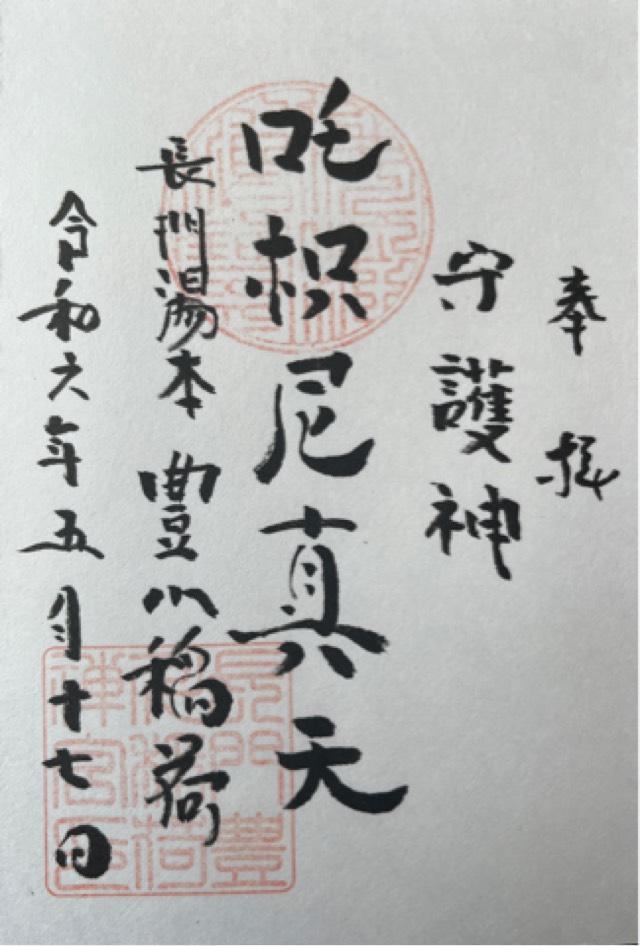 奉拝
守護神
吒枳尼真天
長門湯本 豊川稲荷
令和六年五月十七日